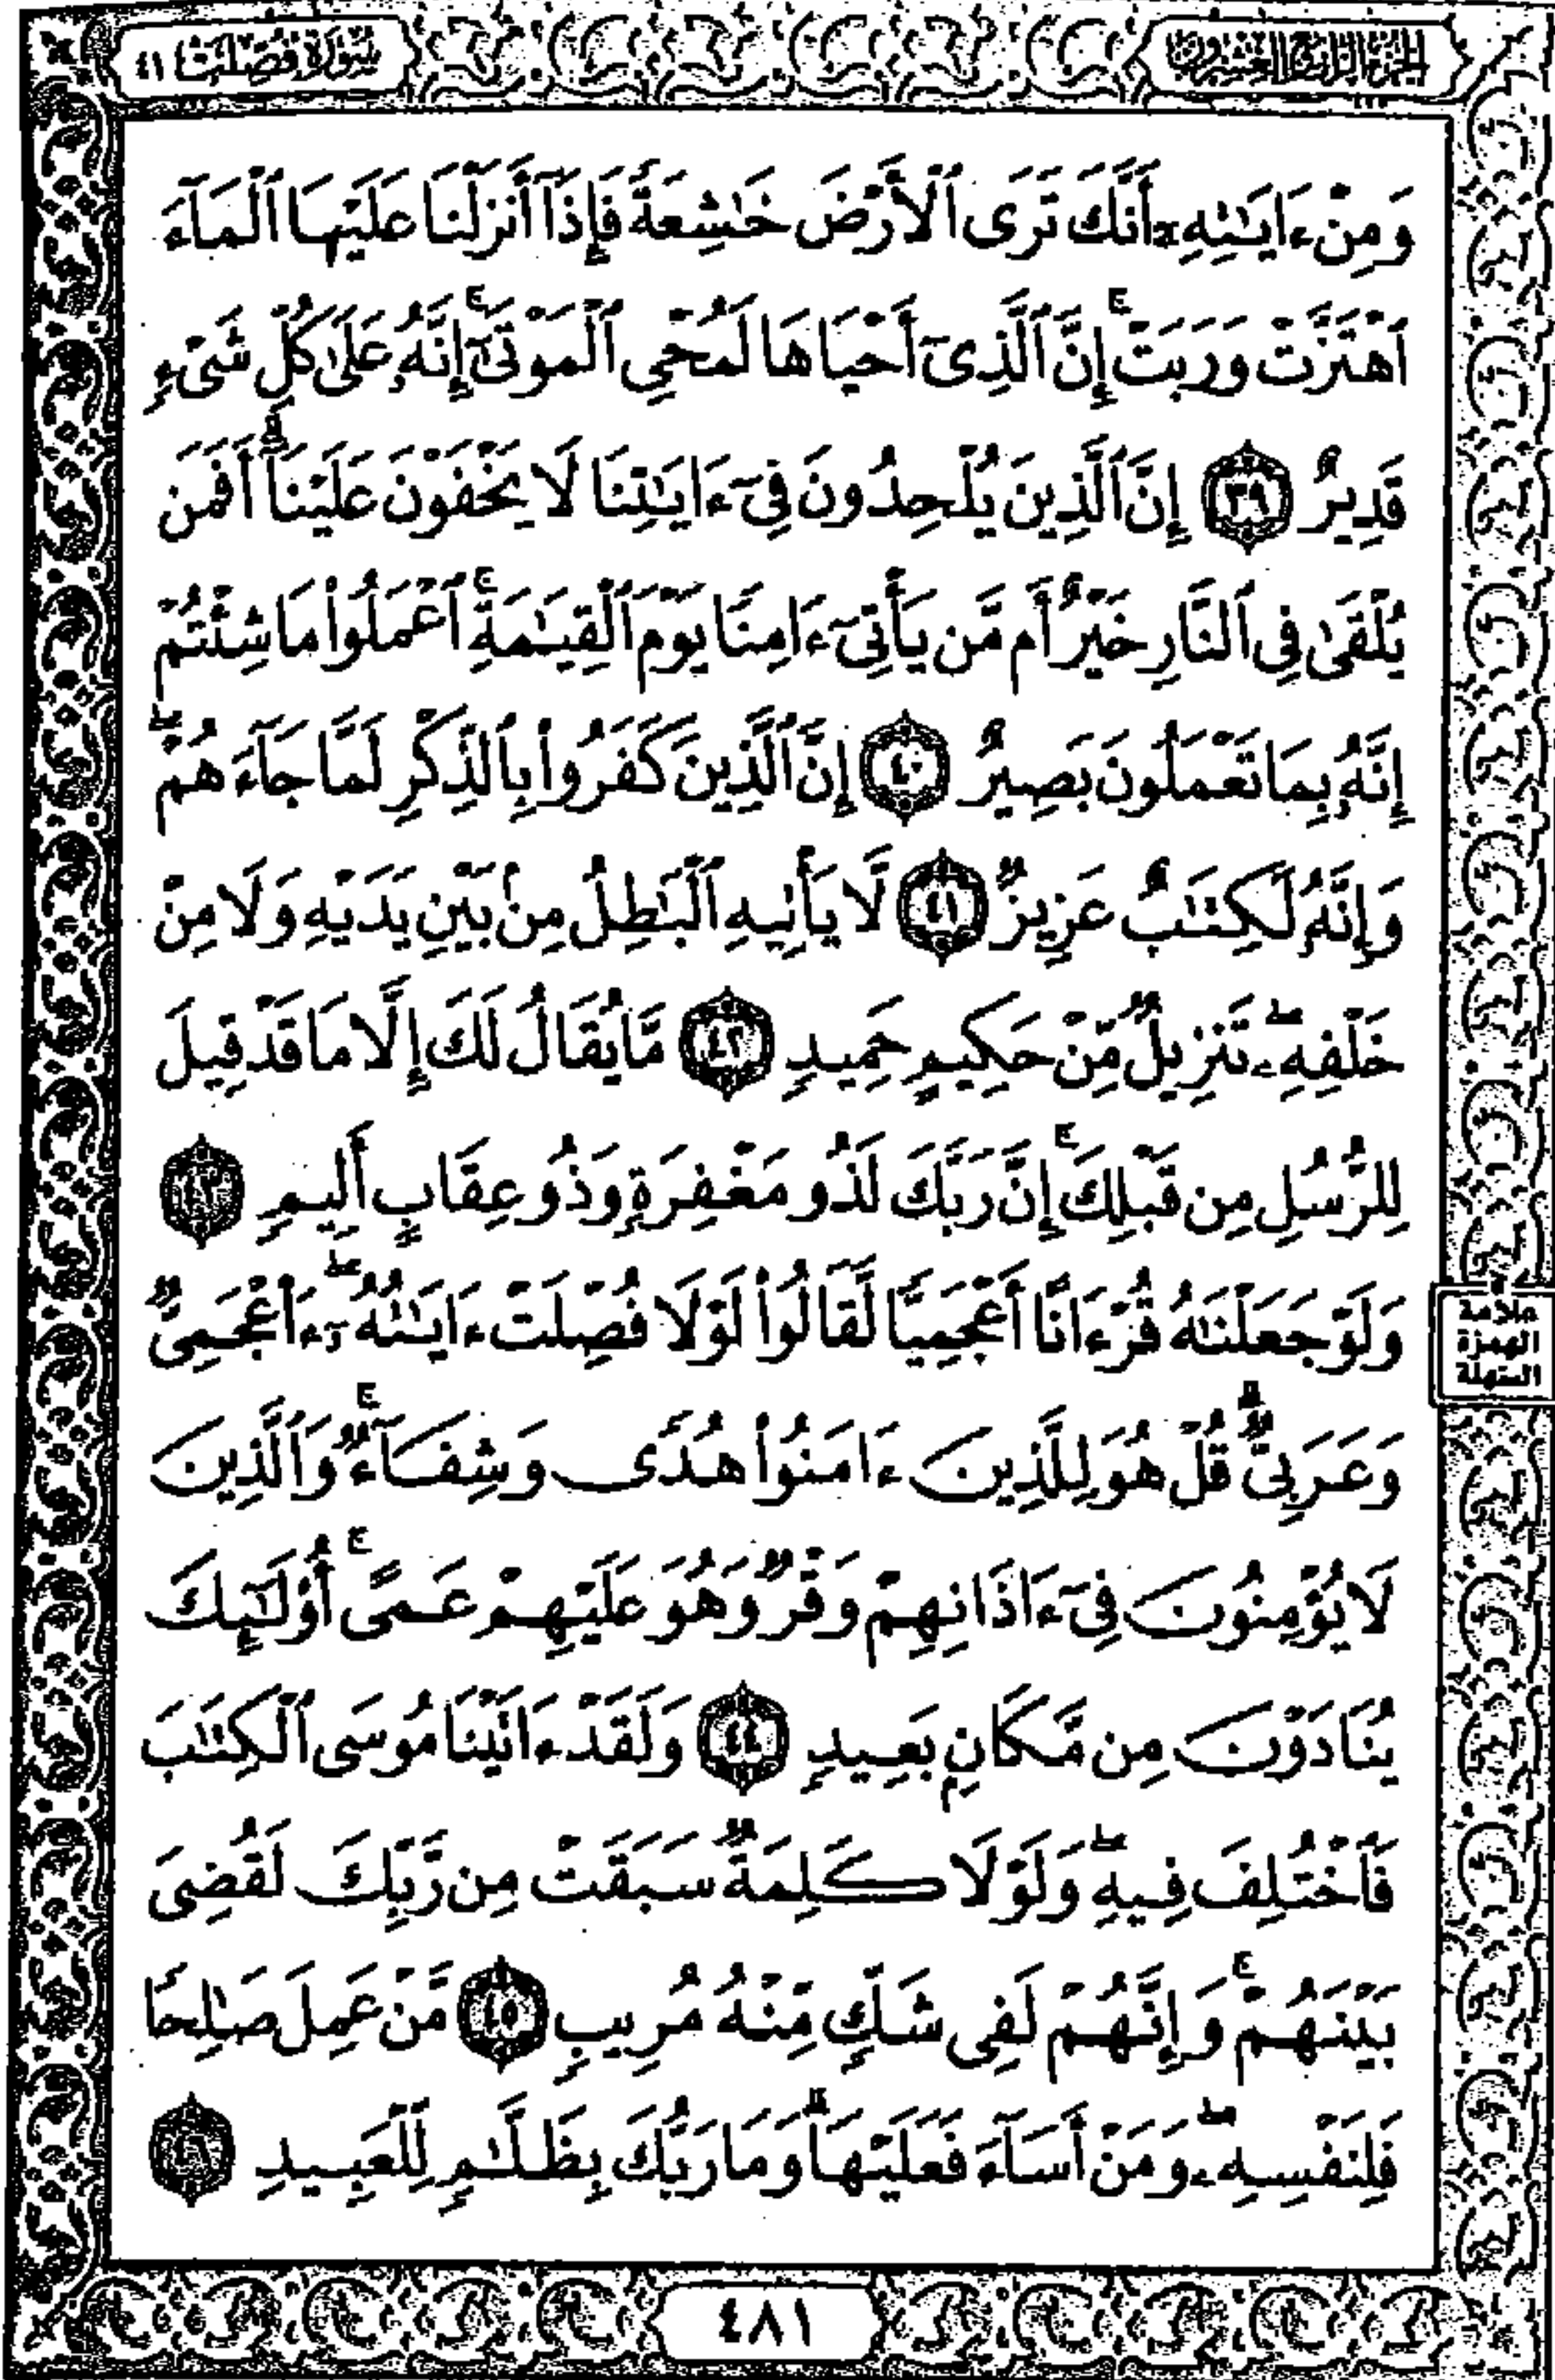 الجزء الرابع والعشرون
سورة فصلت ٤١
وَمِنْ ءَايَٰتِهِۦٓ أَنَّكَ تَرَى ٱلْأَرْضَ خَٰشِعَةً فَإِذَآ أَنزَلْنَا عَلَيْهَا ٱلْمَآءَ
ٱهْتَزَّتْ وَرَبَتْ ۚ إِنَّ ٱلَّذِىٓ أَحْيَاهَا لَمُحْىِ ٱلْمَوْتَىٰٓ ۚ إِنَّهُۥ عَلَىٰ كُلِّ شَىْءٍ
قَدِيرٌ ٣٩ إِنَّ ٱلَّذِينَ يُلْحِدُونَ فِىٓ ءَايَٰتِنَا لَا يَخْفَوْنَ عَلَيْنَآ ۗ أَفَمَن
يُلْقَىٰ فِى ٱلنَّارِ خَيْرٌ أَم مَّن يَأْتِىٓ ءَامِنًا يَوْمَ ٱلْقِيَٰمَةِ ۚ ٱعْمَلُوا۟ مَا شِئْتُمْ
إِنَّهُۥ بِمَا تَعْمَلُونَ بَصِيرٌ ٤٠ إِنَّ ٱلَّذِينَ كَفَرُوا۟ بِٱلذِّكْرِ لَمَّا جَآءَهُمْ ۖ
وَإِنَّهُۥ لَكِتَٰبٌ عَزِيزٌ ٤١ لَّا يَأْتِيهِ ٱلْبَٰطِلُ مِنۢ بَيْنِ يَدَيْهِ وَلَا مِنْ
خَلْفِهِۦ ۖ تَنزِيلٌ مِّنْ حَكِيمٍ حَمِيدٍ ٤٢ مَّا يُقَالُ لَكَ إِلَّا مَا قَدْ قِيلَ
لِلرُّسُلِ مِن قَبْلِكَ ۚ إِنَّ رَبَّكَ لَذُو مَغْفِرَةٍ وَذُو عِقَابٍ أَلِيمٍ ٤٣
وَلَوْ جَعَلْنَٰهُ قُرْءَانًا أَعْجَمِيًّا لَّقَالُوا۟ لَوْلَا فُصِّلَتْ ءَايَٰتُهُۥٓ ۖ ءَا۬عْجَمِىٌّ
وَعَرَبِىٌّ ۗ قُلْ هُوَ لِلَّذِينَ ءَامَنُوا۟ هُدًى وَشِفَآءٌ ۚ وَٱلَّذِينَ
لَا يُؤْمِنُونَ فِىٓ ءَاذَانِهِمْ وَقْرٌ وَهُوَ عَلَيْهِمْ عَمًى ۚ أُو۟لَٰٓئِكَ
يُنَادَوْنَ مِن مَّكَانٍۭ بَعِيدٍ ٤٤ وَلَقَدْ ءَاتَيْنَا مُوسَى ٱلْكِتَٰبَ
فَٱخْتُلِفَ فِيهِ ۖ وَلَوْلَا كَلِمَةٌ سَبَقَتْ مِن رَّبِّكَ لَقُضِىَ
بَيْنَهُمْ ۚ وَإِنَّهُمْ لَفِى شَكٍّ مِّنْهُ مُرِيبٍ ٤٥ مَّنْ عَمِلَ صَٰلِحًا
فَلِنَفْسِهِۦ ۖ وَمَنْ أَسَآءَ فَعَلَيْهَا ۗ وَمَا رَبُّكَ بِظَلَّٰمٍ لِّلْعَبِيدِ ٤٦
علامة
الهمزة
المسهلة
٤٨١